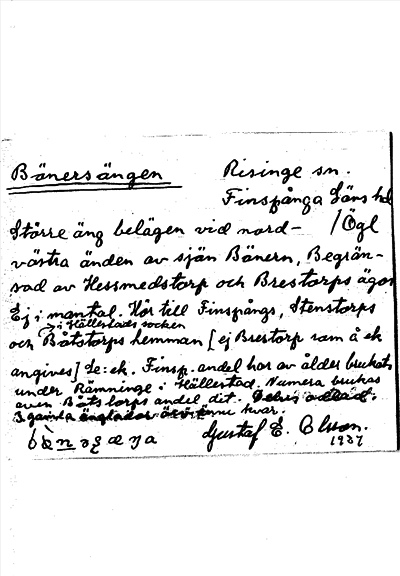 Bänersängen
Risinge sn.
Finspånga Läns hd
Större äng belägen vid nord- / Ögl
västra änden av sjön Bänern, Begrän-
sad av Hessmedstorp och Brestorps ägor
Ej i mantal. Hör till Finspångs, Stenstorps
i Hällestads socken
och Båtstorps hemman [ej Brestorp som å ek
angives] Se: ek. Finsp. andel har av ålder brukats
under Rämninge i Hällestad. Numera brukas
även Båtstorps andel dit. Delvis odlad.
3 gamla änglador ännu kvar.
Gustaf E. Olsson.
1937